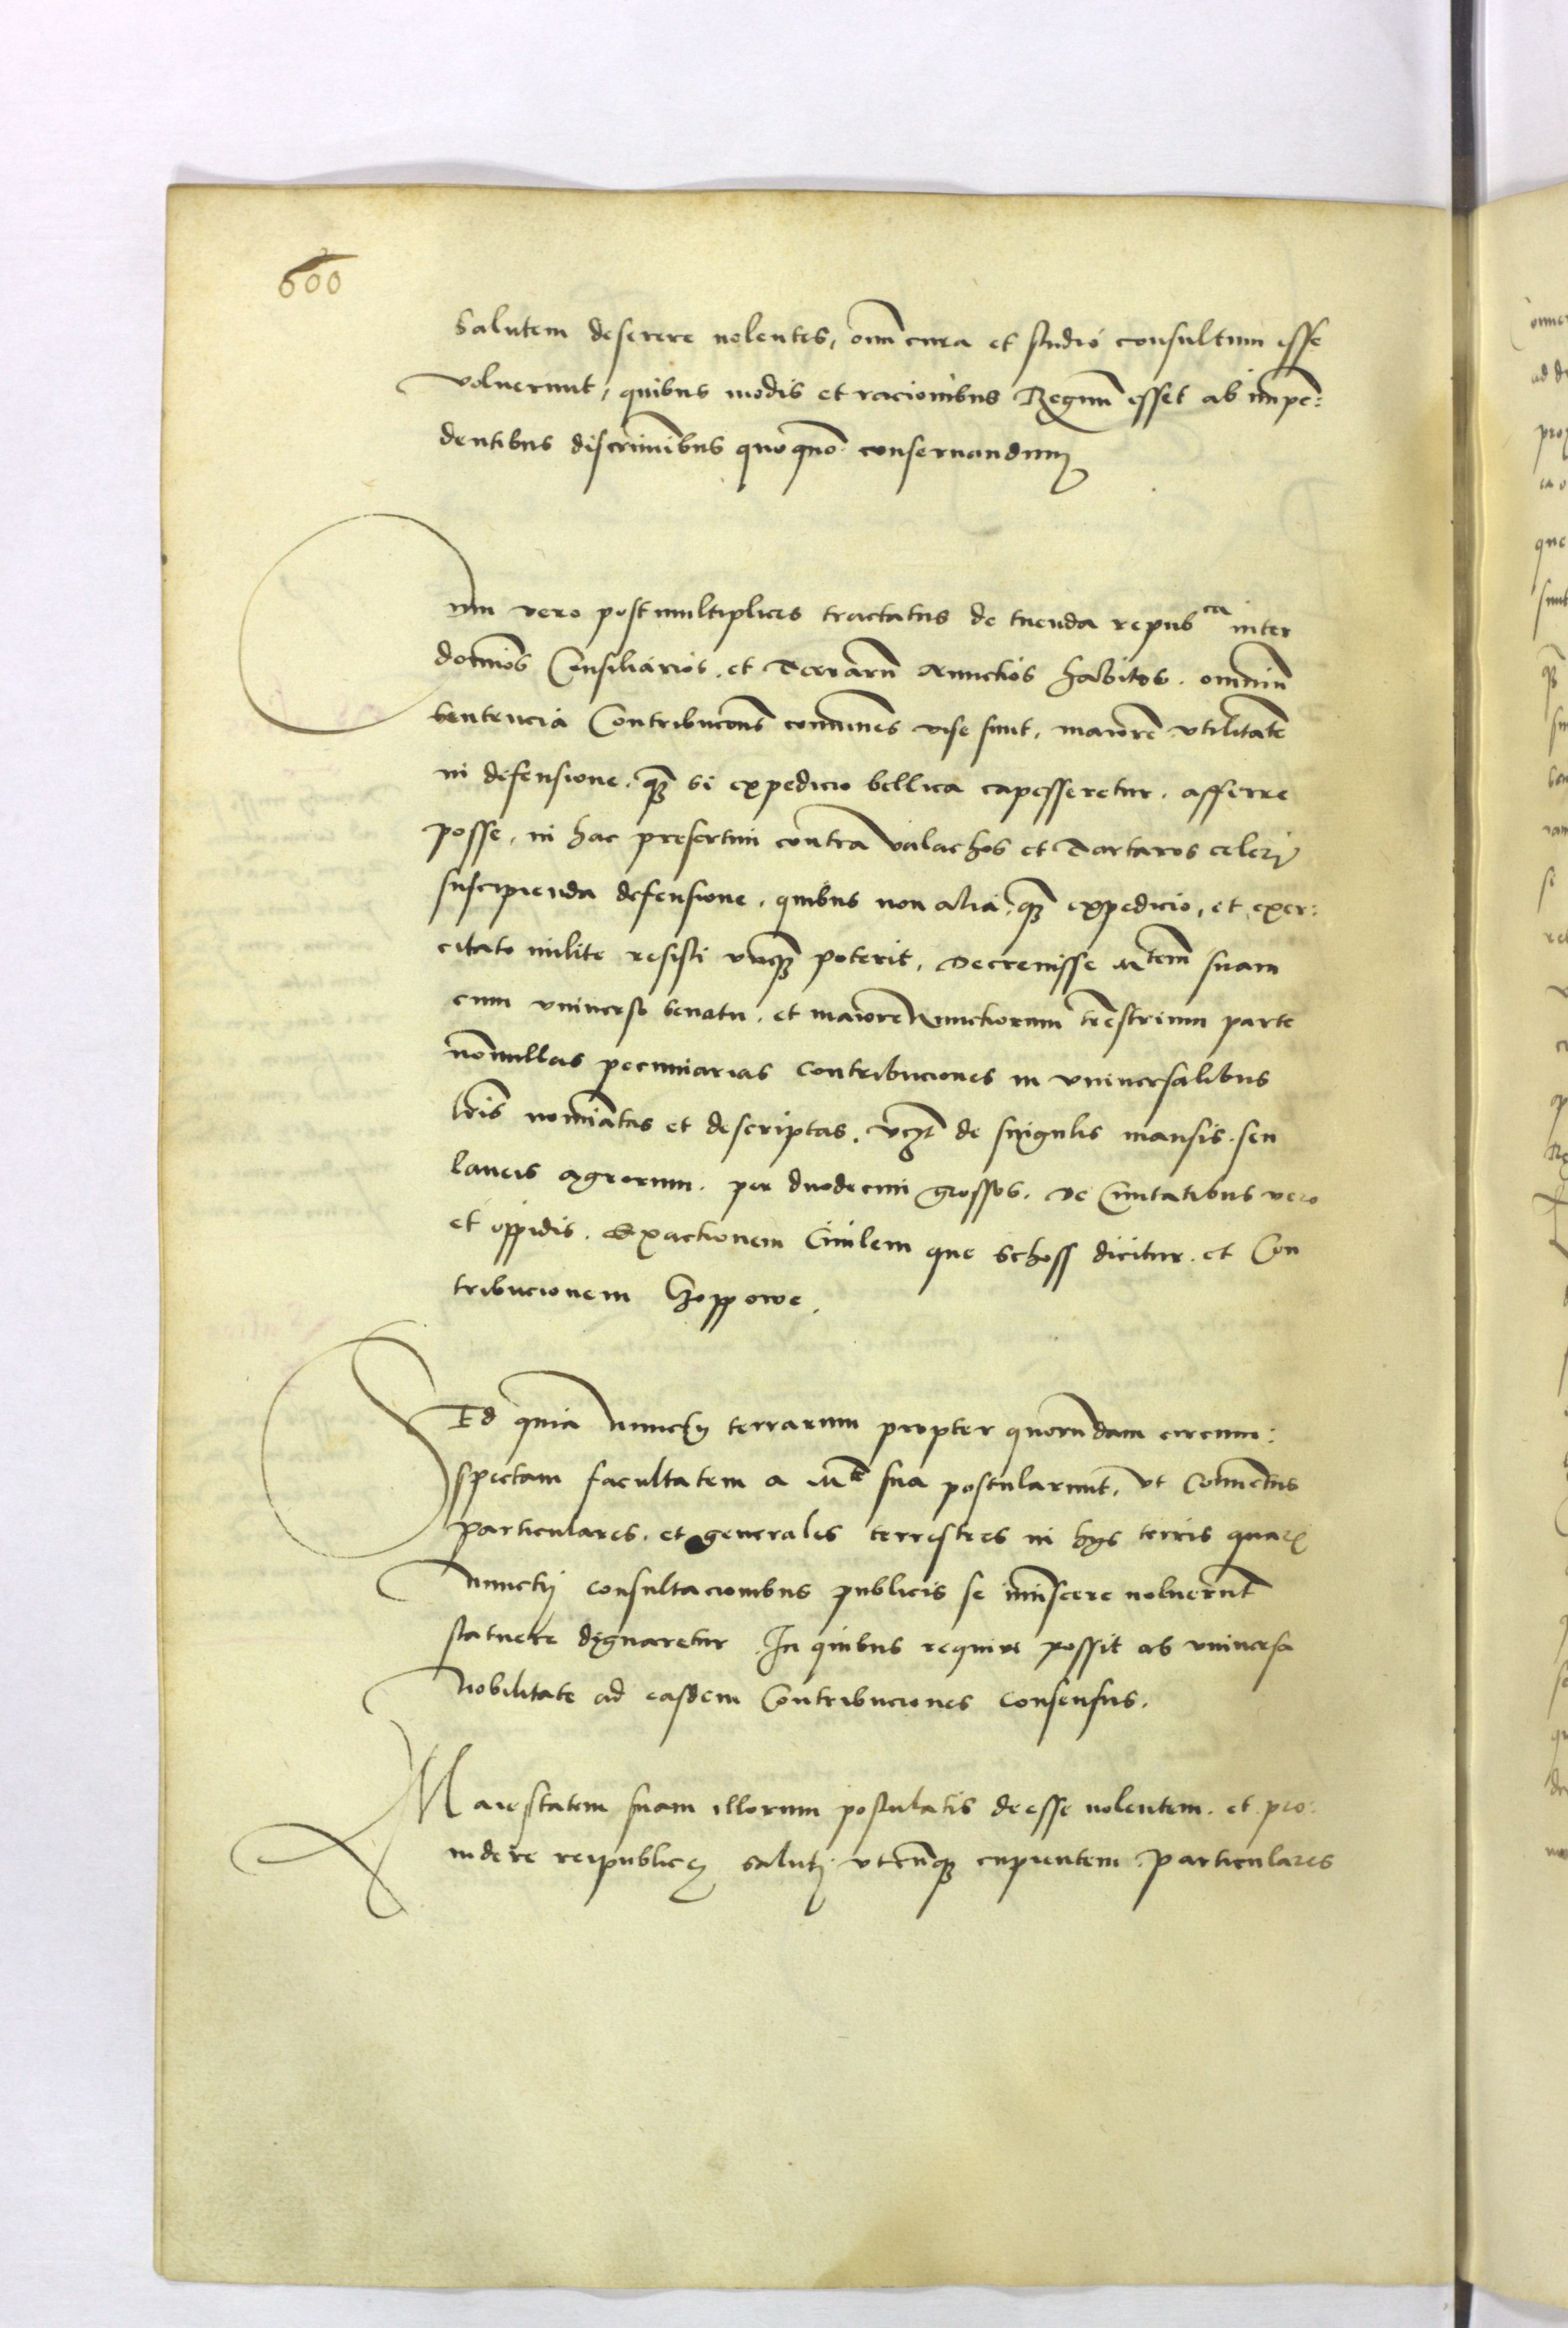 600
Salutem deserere nolentes, omni cura et studio consultum esse
voluerunt, quibus modis et racionibus Regnum esset ab impe:
dentibus discriminibus quoquo conseruandum
Cum vero post multiplices tractatus de tuenda repubca inter
dominos Consiliarios. et Terrarum Nunctios habitos. omnium
sentencia Contribucones communes vise sunt, maiorem vtilitatem
in defensione. quam si expedicio bellica capesseretur. afferre
posse, in hac presertim contra Valachos et Tartaros celerj
suscipienda defensione. quibus non alia. quam expedicio, et exer:
citato milite resisti vnquam poterit, Decreuisse Mtem suam
cum vniuerso senatu. et maiore Nunctiorum trestrium parte
nonnullas pecuniarias contribuciones in vniuersalibus
lris nominatas et descriptas. vczt de singulis mansis. seu
laneis agrorum. per duodecim grossos. De Ciuitatibus vero
et oppidis. Exactionem Ciuilem que Schoss dicitur. et Con
tribucionem Czoppowe.
SEd quia Nunctij terrarum propter quorundam circum:
spectam facultatem a Mte sua postularunt, vt Conuentus
particulares. et generales terrestres in hys terris quarum
Nunctij consultacionibus publicis se immiscere noluerunt
statuere dignaretur. In quibus requiri possit ab vniuersa
Nobilitate ad easdem Contribuciones consensus.
Maiestatem suam illorum postulatis deesse nolentem. et pro:
uidere reipublice salutj vtcunque cupientem. Particulares